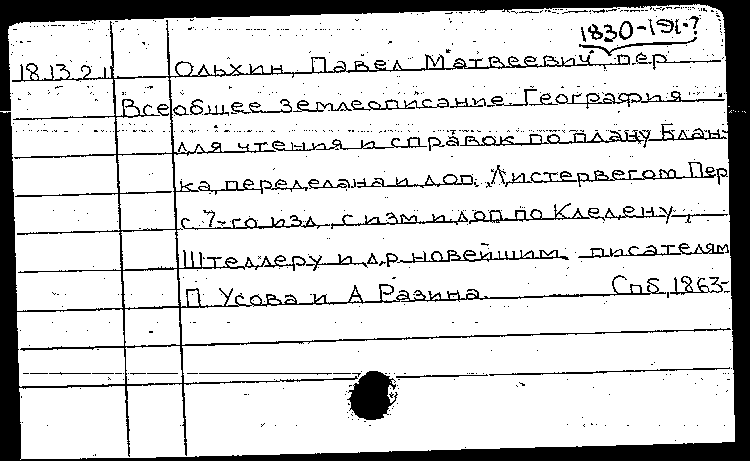 1830-191.?
18.13.2.11 Ольхин, Павел Матвеевич, пер
Всеобщее землеописание. География
для чтения и справок по плану Блан-
ка, переделана и доп. Дистервегом. Пер
с 7-го изд., с изм. и доп. по Кледену,
Штедлеру и др. новейшим. писателям
П. Усова и А. Разина. Спб, 1863-